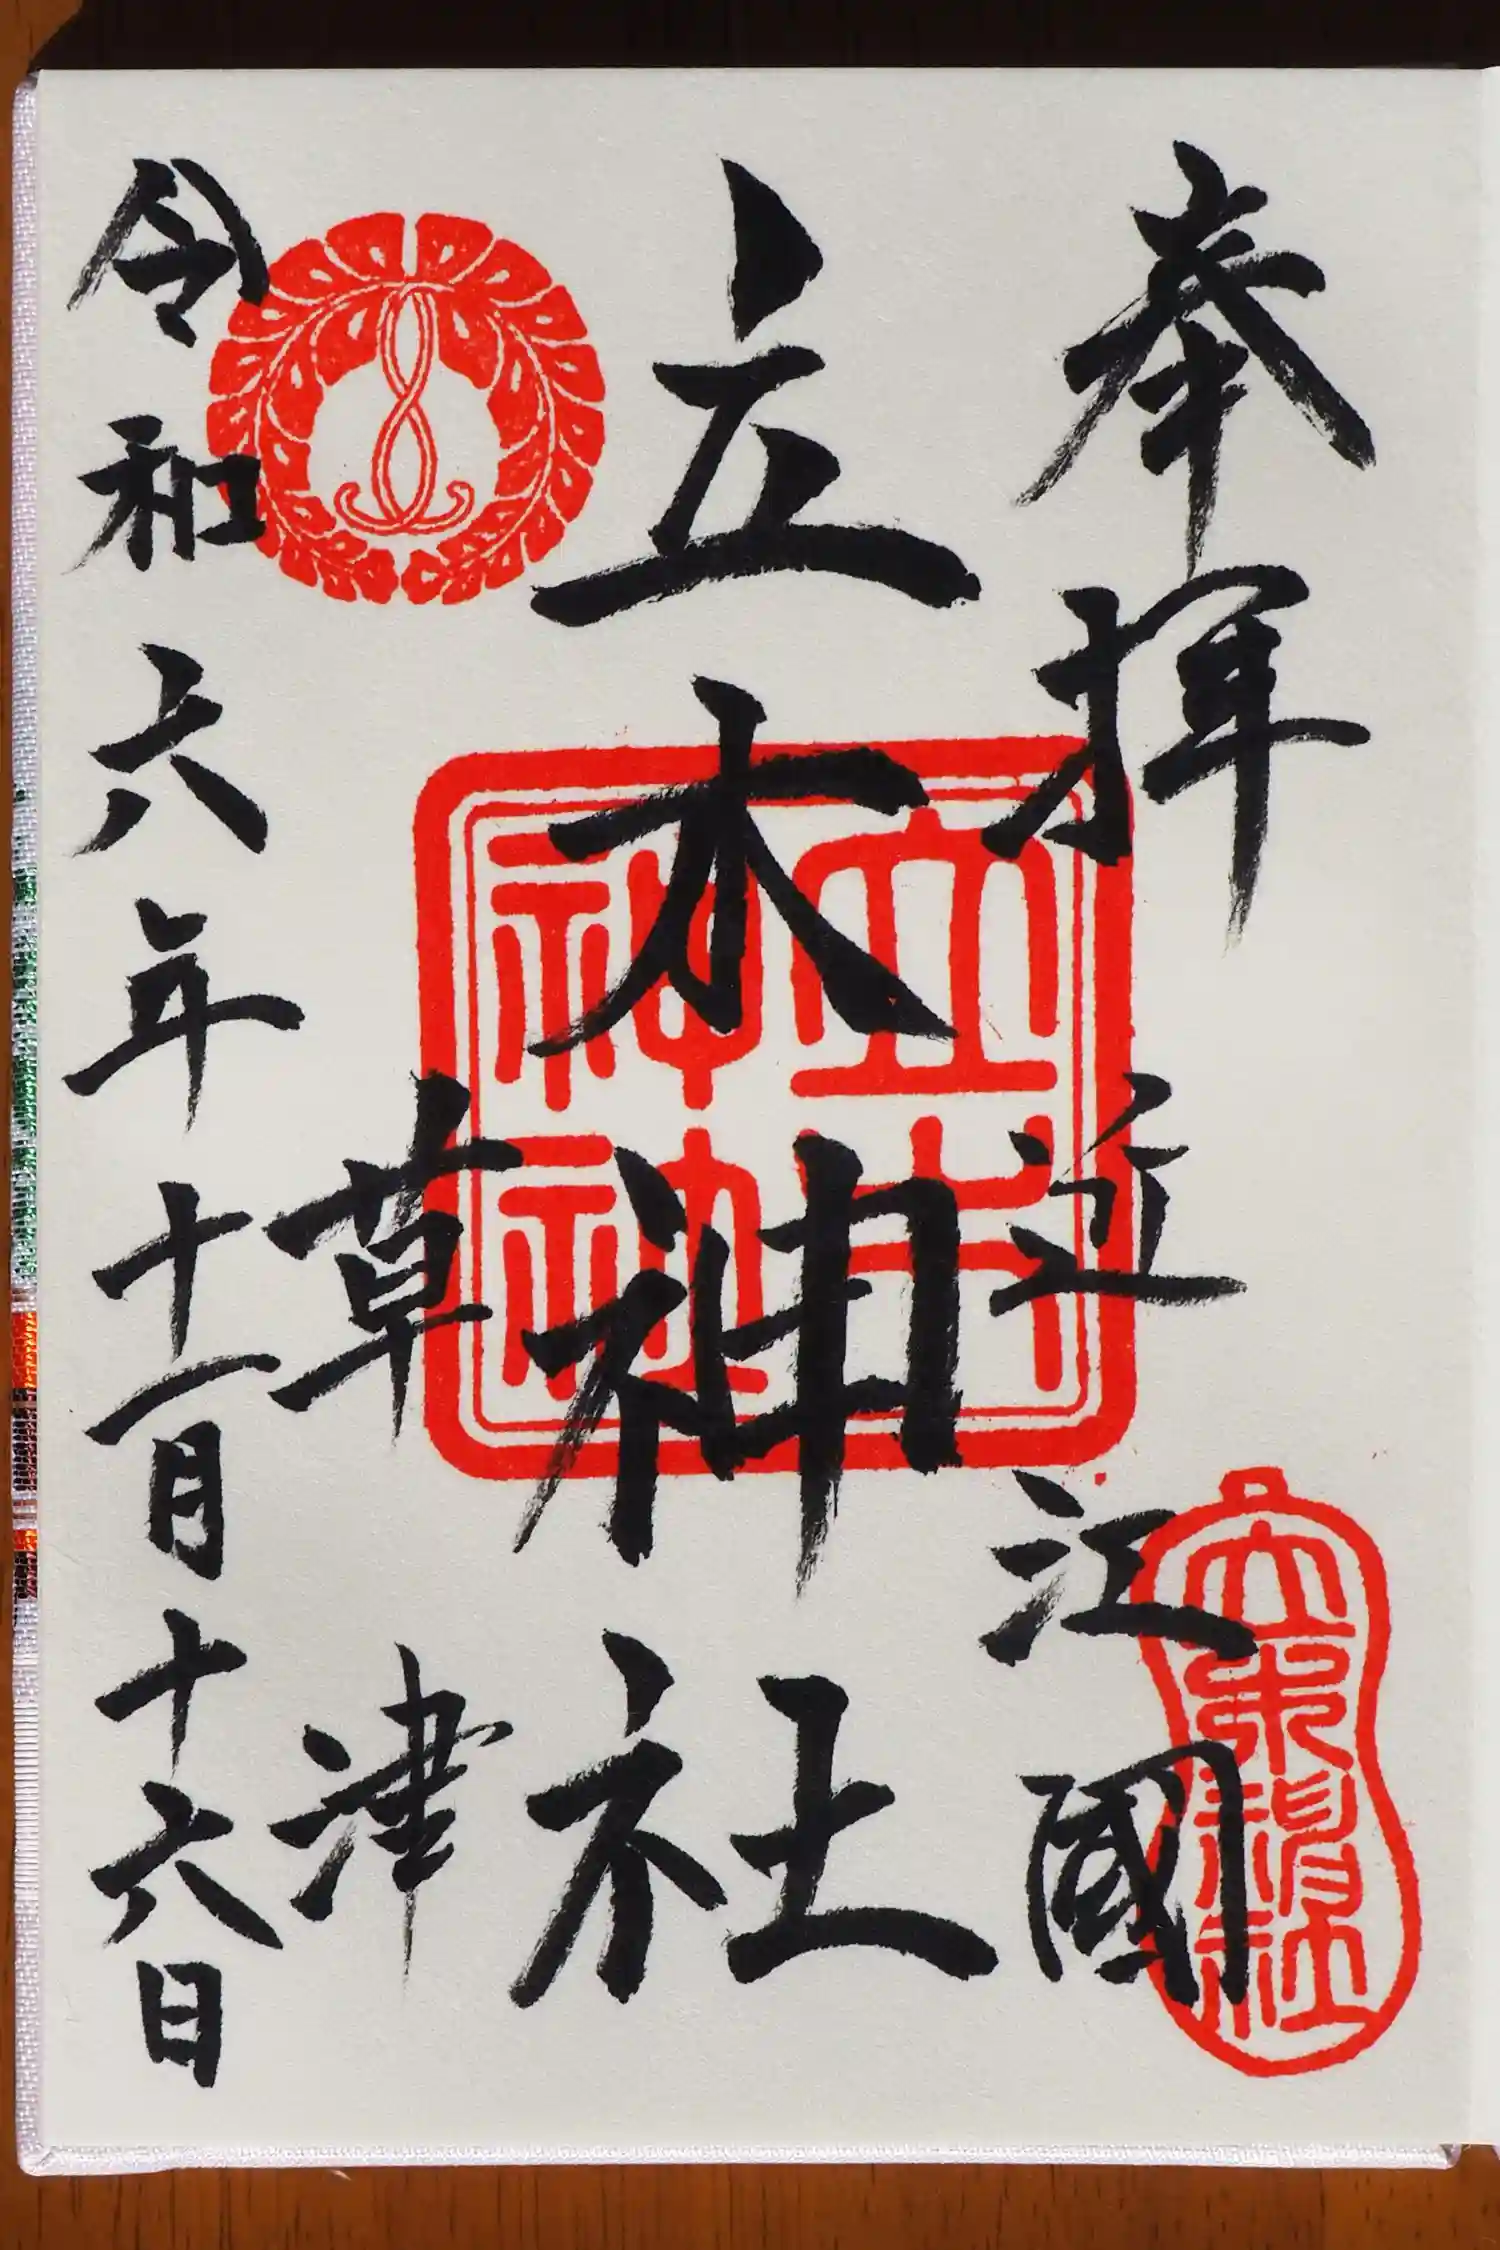 奉拝
近江國
立木神社
草津
令和六年十一月十六日
立木神社
立木神社